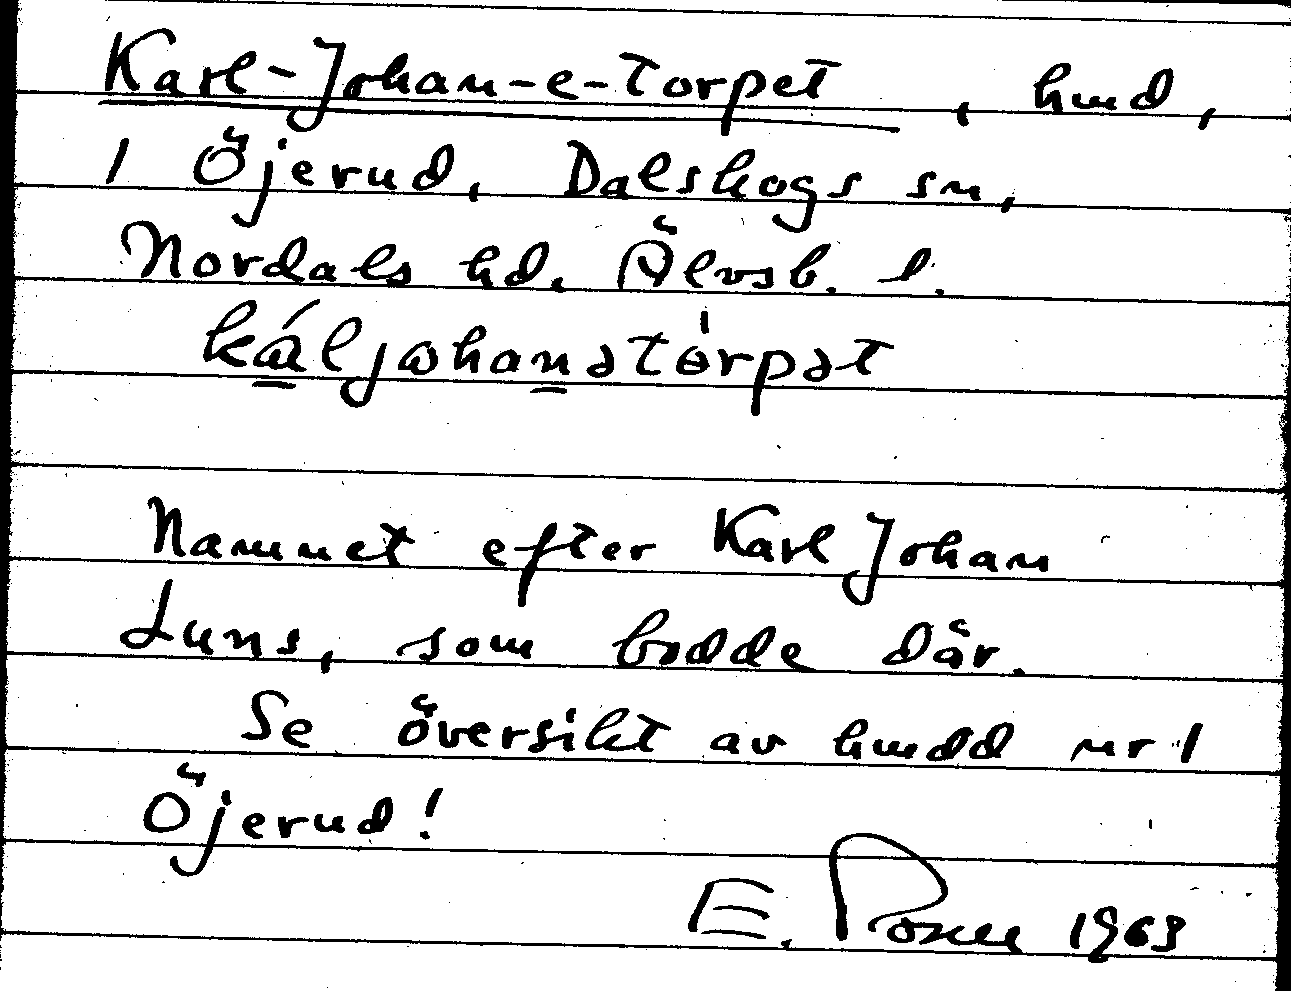 Karl-Johan-e-torpet, hmd,
1 Öjerud, Dalskogs sn,
Nordals hd. Älvsb. l.
kál johanətòrpət
Namnet efter Karl Johan
Luns, som bodde där.
Se översikt av hmdd nr 1
Öjerud!
E. 1963